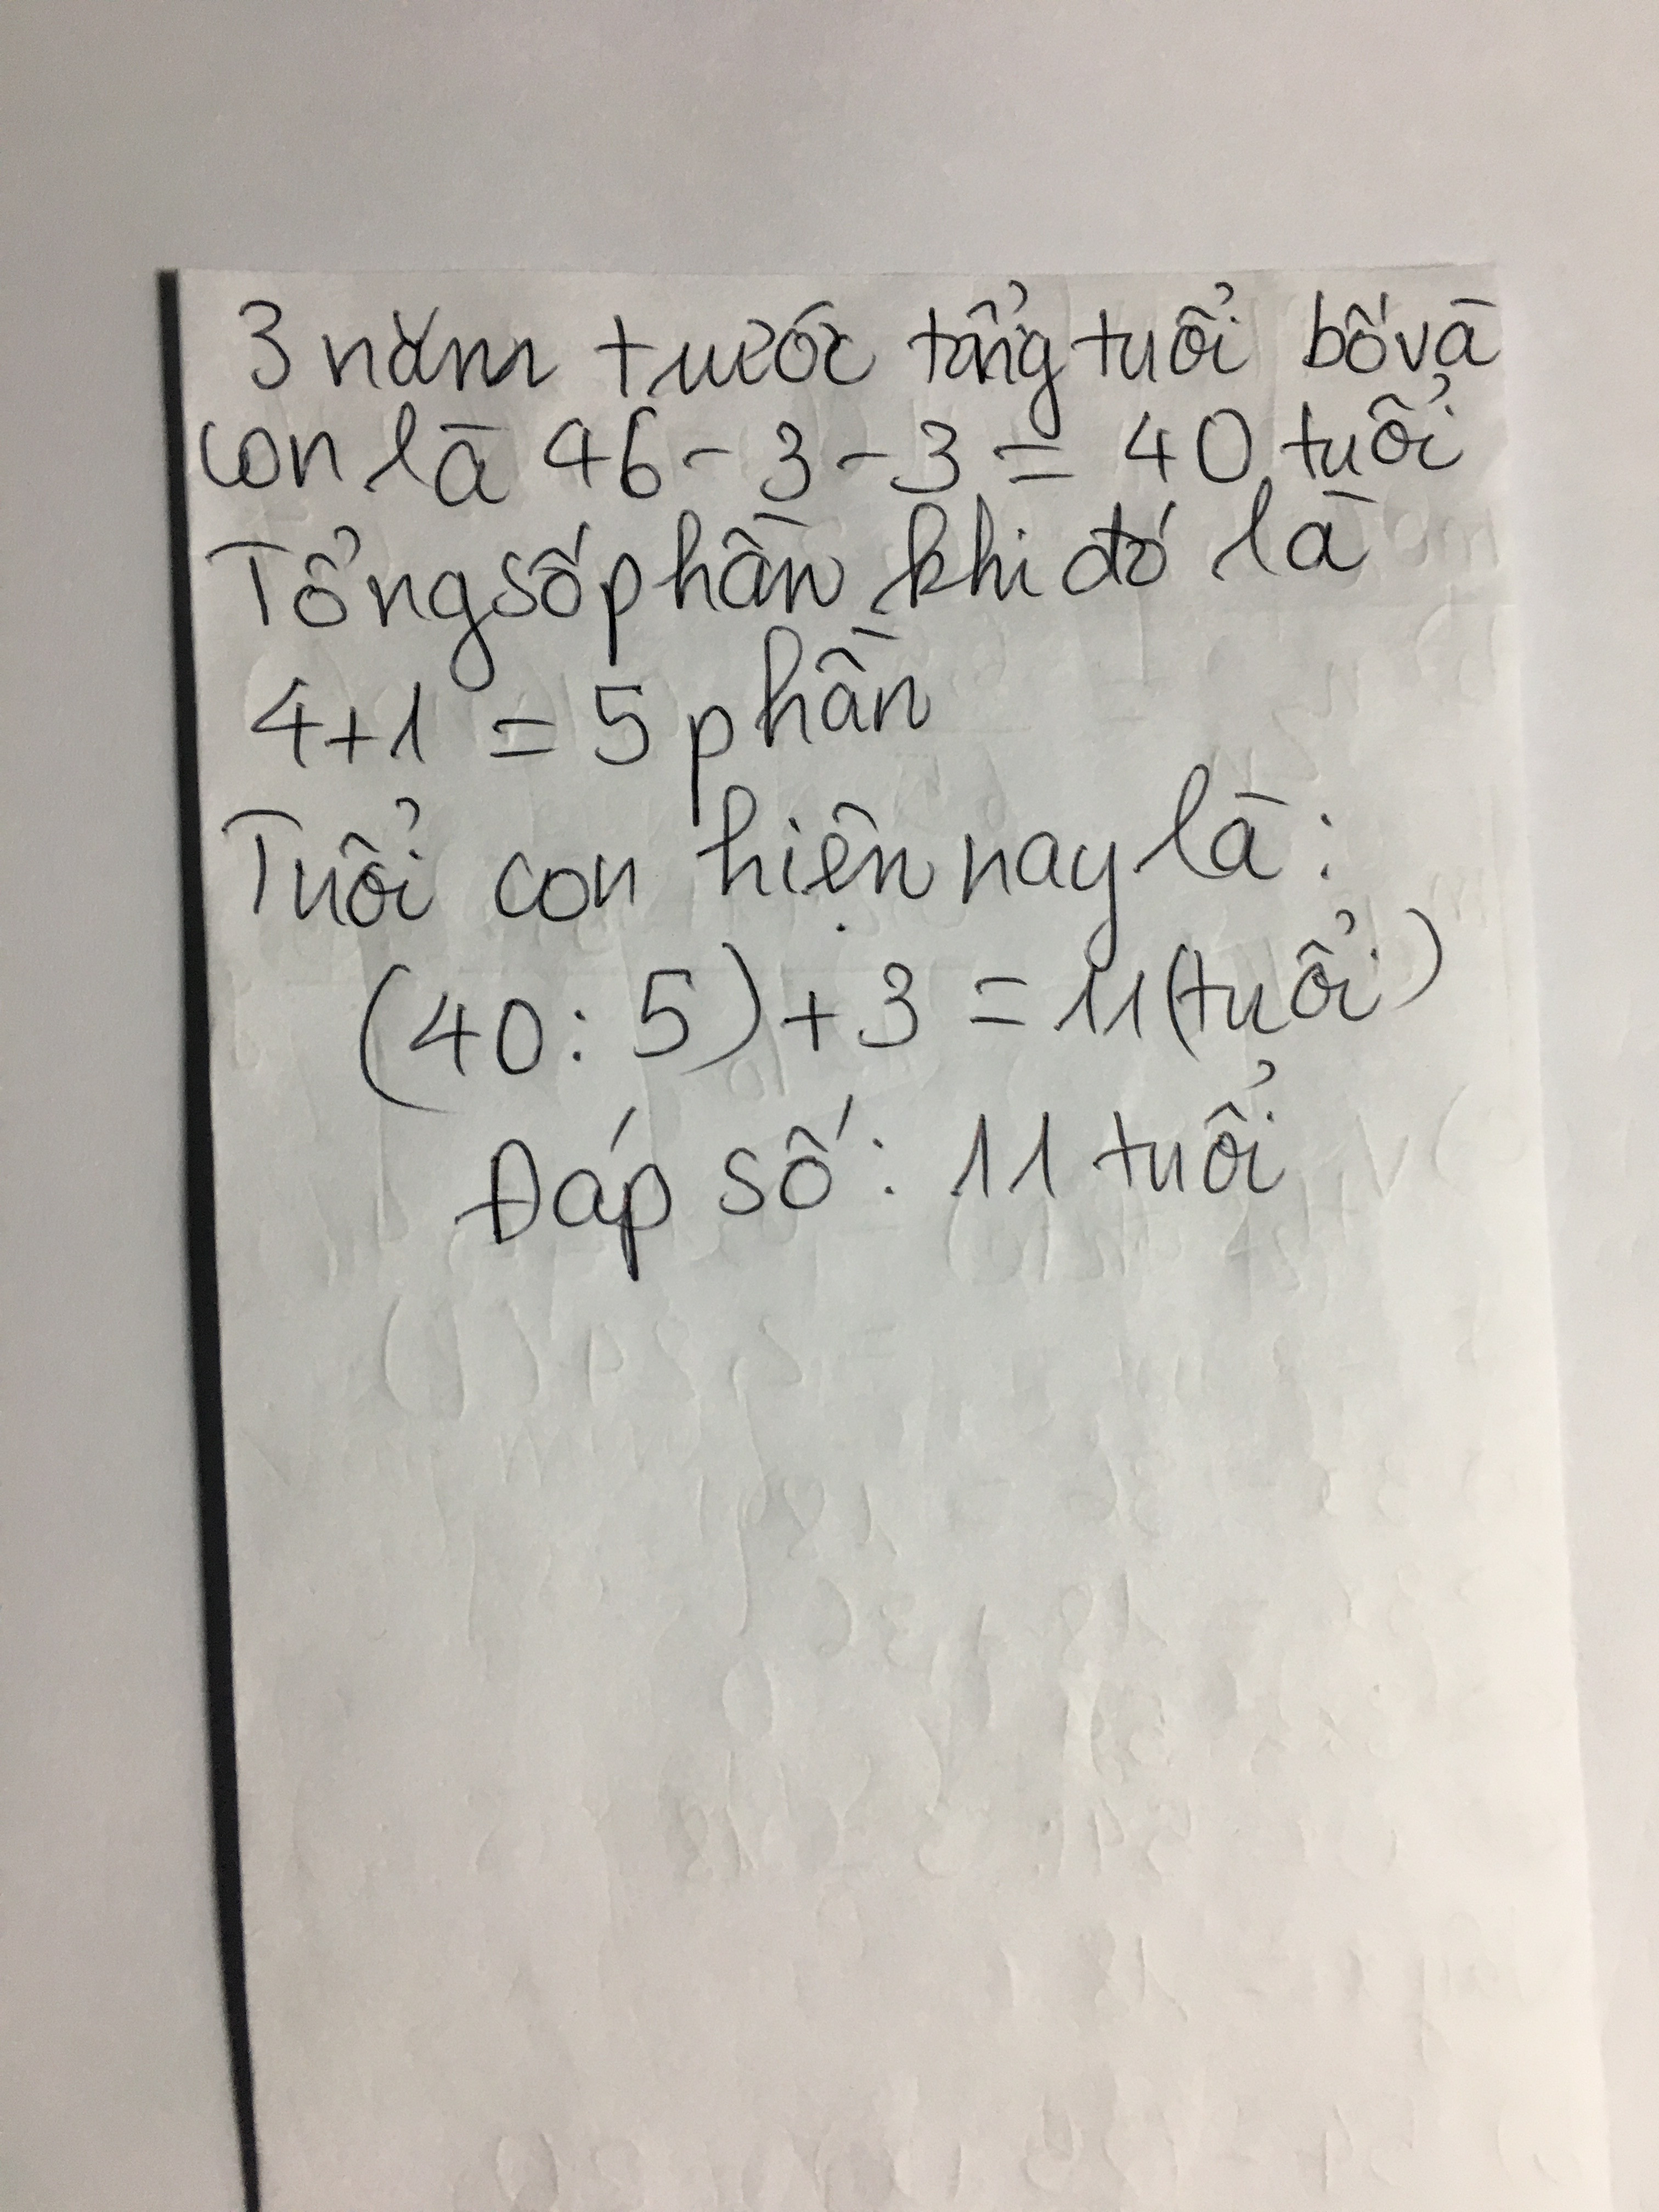 3 năm trước tổng tuổi bố và
con là 46 - 3 - 3 = 40 tuổi
Tổng số phần khi đó là
4 + 1 = 5 phần
Tuổi con hiện nay là :
(40 : 5) + 3 = 11 (tuổi)
Đáp số : 11 tuổi